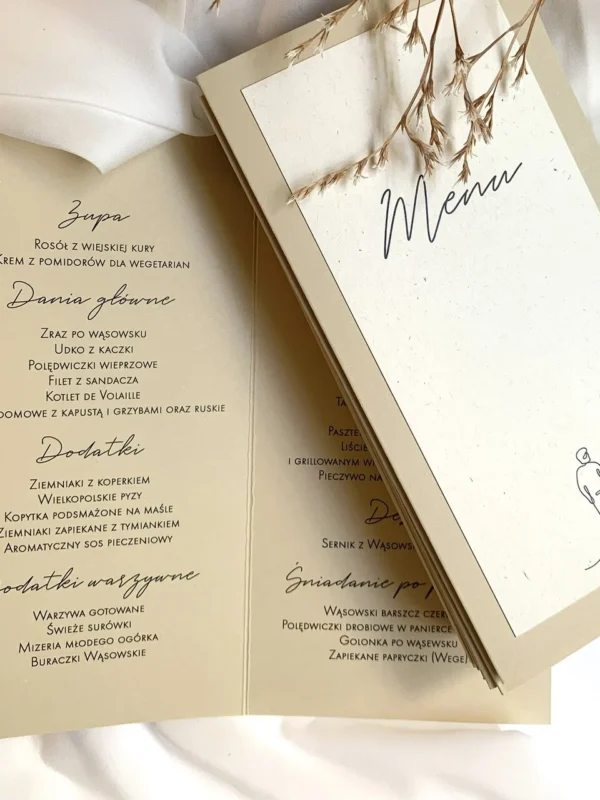 Zupa
Rosół z wiejskiej kury
Krem z pomidorów dla wegetarian
Dania główne
Zraz po wąsowsku
Udko z kaczki
Polędwiczki wieprzowe
Filet z sandacza
Kotlet de Volaille
domowe z kapustą i grzybami oraz ruskie
Dodatki
Ziemniaki z koperkiem
Wielkopolskie pyzy
Kopytka podsmażone na maśle
Ziemniaki zapiekane z tymiankiem
Aromatyczny sos pieczeniowy
Dodatki warzywne
Warzywa gotowane
Świeże surówki
Mizeria młodego ogórka
Buraczki Wąsowskie
i grillowanym
Pieczywo
Sernik z
Śniadanie po
Wąsowski barszcz
Polędwiczki drobiowe w panierce
Golonka po wąsewsku
Zapiekane papryczki (Wege)
Menu